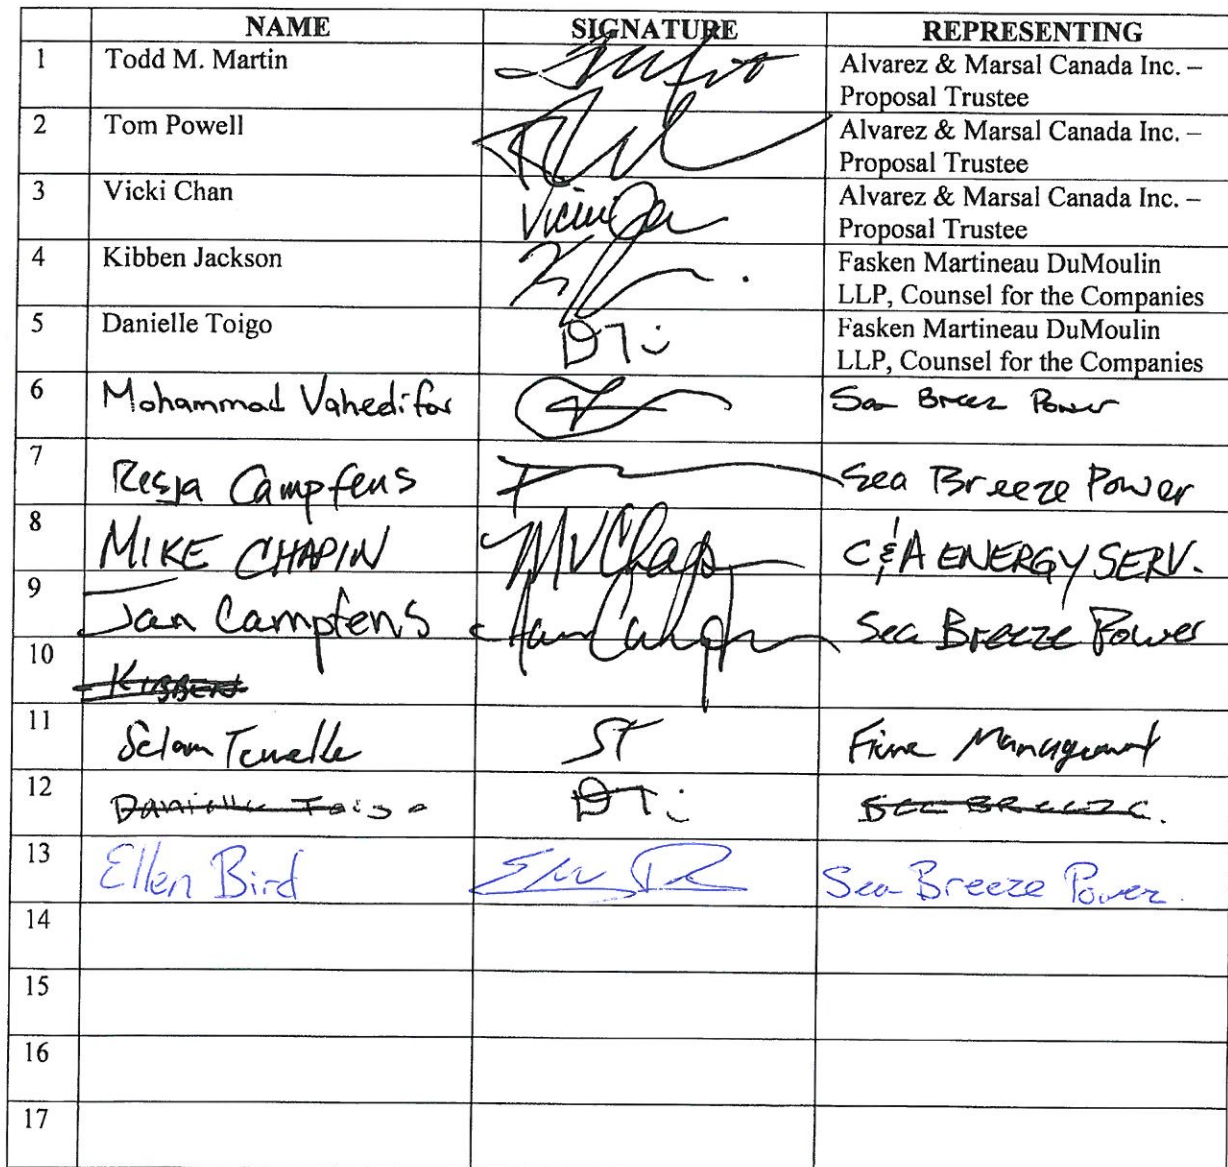 NAME SIGNATURE REPRESENTING
1 Todd M. Martin Alvarez & Marsal Canada Inc. –
Proposal Trustee
2 Tom Powell Alvarez & Marsal Canada Inc. –
Proposal Trustee
3 Vicki Chan Alvarez & Marsal Canada Inc. –
Proposal Trustee
4 Kibben Jackson Fasken Martineau DuMoulin
LLP, Counsel for the Companies
5 Danielle Toigo DTi Fasken Martineau DuMoulin
LLP, Counsel for the Companies
6 Mohammad Vahedifar Sea Breeze Power
7 Resja Campfens Sea Breeze Power
8 MIKE CHAPIN MVChap C&A ENERGY SERV.
9 Jan Campfens Sea Breeze Power
10 KIBBEN
11 Selam ST Management
12 Danielle Toigo DTi SEA BREEZE.
13 Ellen Bird Sea Breeze Power.
14
15
16
17